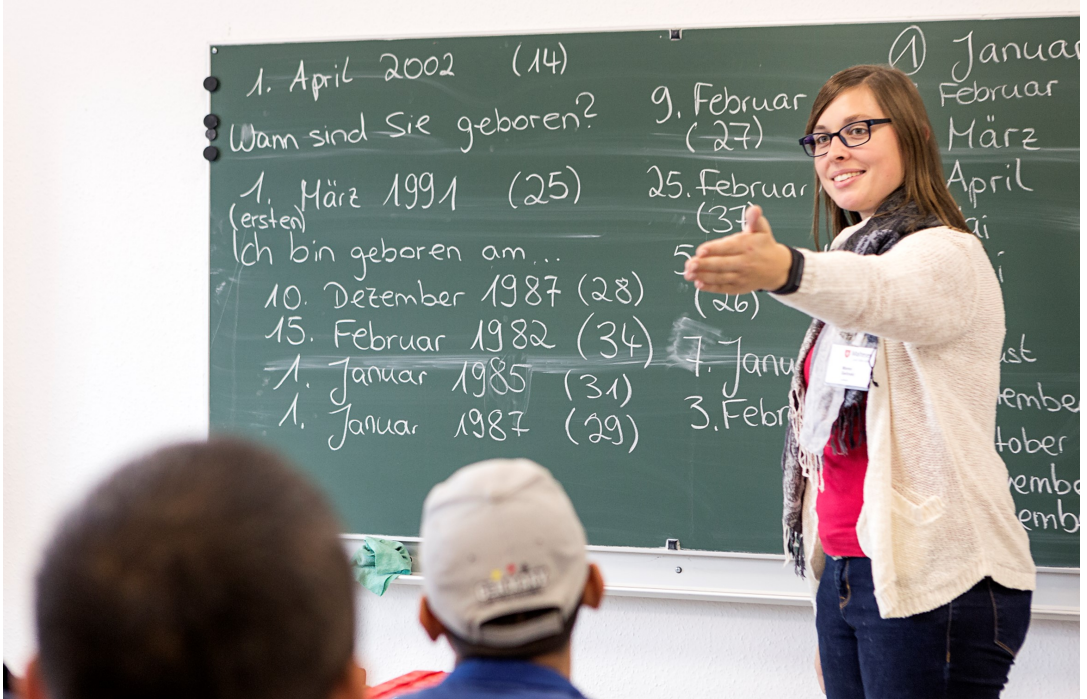 1. April 2002 (14)
Wann sind Sie geboren?
1. März 1991 (25)
(ersten)
Ich bin geboren am...
10. Dezember 1987 (28)
15. Februar 1982 (34)
1. Januar 1985 (31)
1. Januar 1987 (29)
9. Februar
(27)
25. Februar
(37
5
(26)
7. Janu
3. Febr
① Januar
Februar
März
April
ai
i
ust
tember
tober
vembe
embe